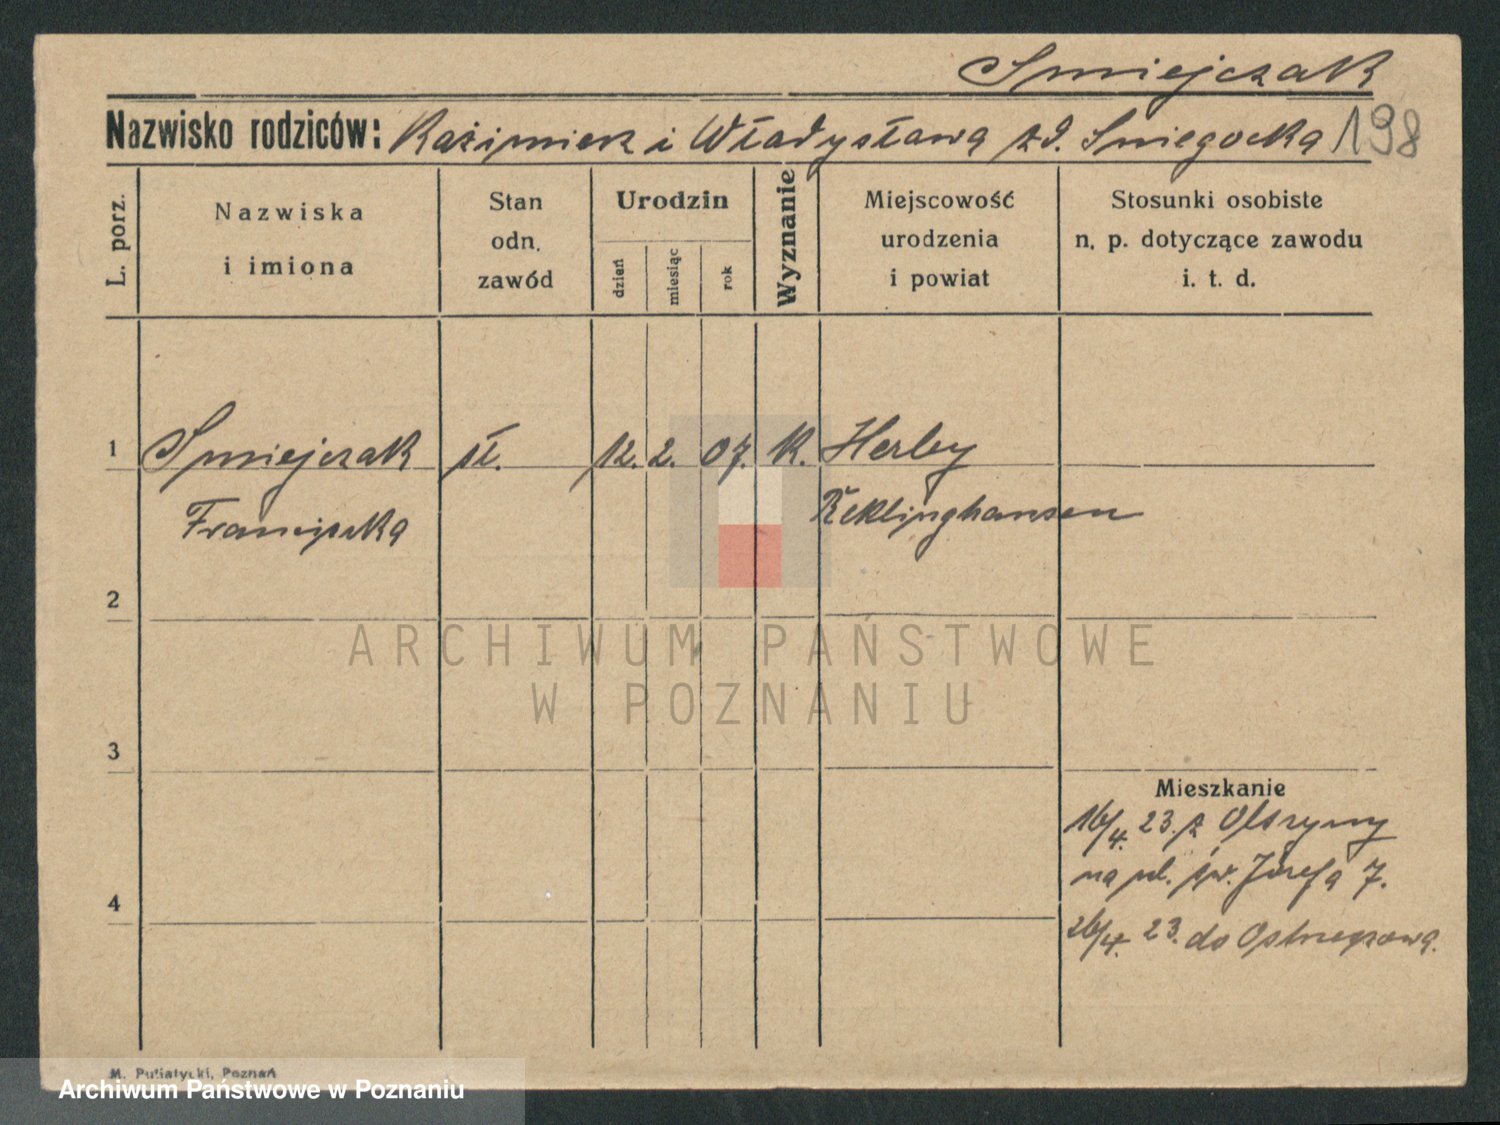 Smiejczak
Nazwisko rodziców: Kaźimierz i Władysława zd. Sniegocka 198
L. porz.
Nazwiska
i imiona
Stan
odn.
zawód
Urodzin
dzień
miesiąc
rok
Wyznanie
Miejscowość
urodzenia
i powiat
Stosunki osobiste
n. p. dotyczące zawodu
i. t. d.
1 Smiejczak sł. 12. 2. 07. K. Herley
Franciszka Reklinghausen
2
ARCHIWUM PAŃSTWOWE
W POZNANIU
3
Mieszkanie
16/4. 23. z
na pl. św. Józefa 7.
4
26/4. 23. do Ostrzeszowa.
M. Putiatycki, Poznań
Archiwum Państwowe w Poznaniu